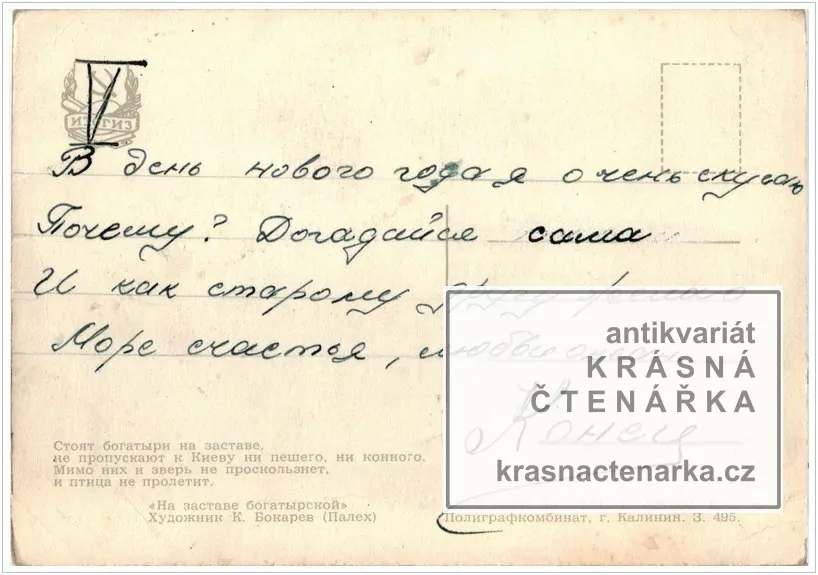 V
ИЗОГИЗ
В день нового года я очень скучаю
Почему? Догадайся сама
И как старому другу желаю
Море счастья, любви
Конец
antikvariát
KRÁSNÁ
ČTENÁŘKA
krasnactenarka.cz
Стоят богатыри на заставе,
не пропускают к Киеву ни пешего, ни конного.
Мимо них и зверь не проскользнет,
и птица не пролетит.
«На заставе богатырской»
Художник К. Бокарев (Палех)
Полиграфкомбинат, г. Калинин. З. 495.